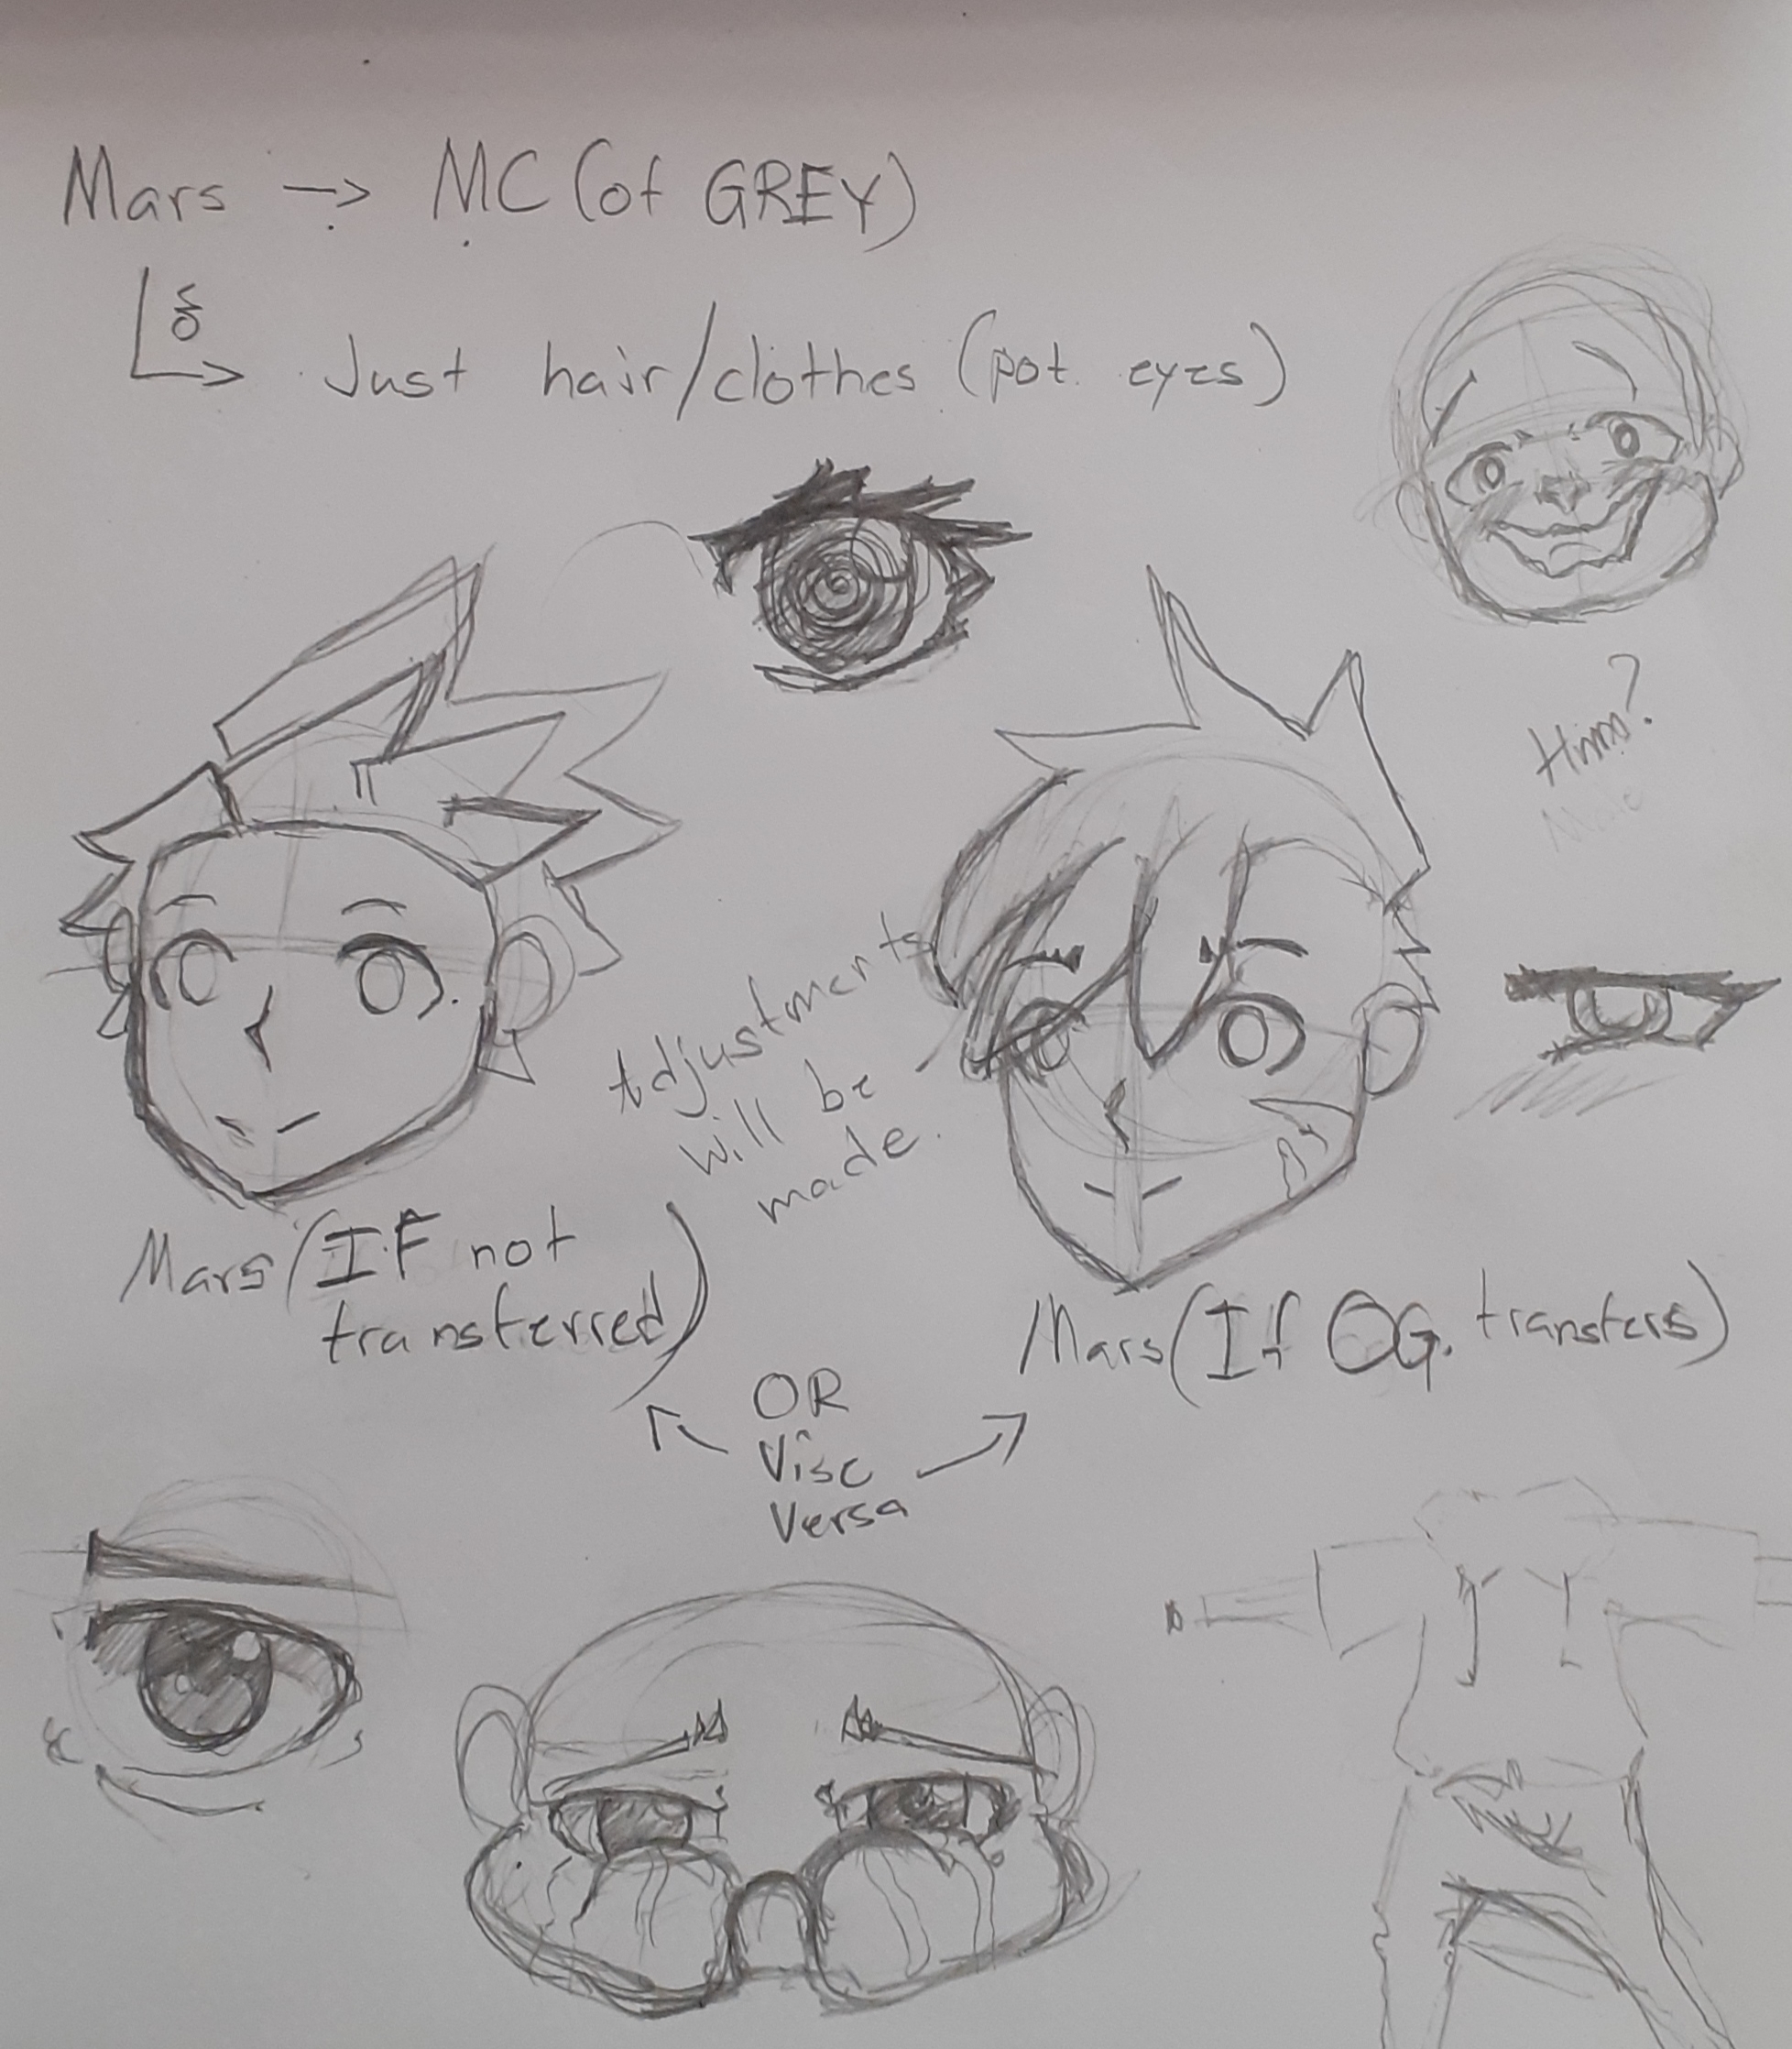 Mars → MC (of GREY)
Just hair/clothes (pot. eyes)
Him?
Adjustments
will be
made.
Mars (IF not
transferred)
Mars (If OG. transfers)
OR
Visc
Versa